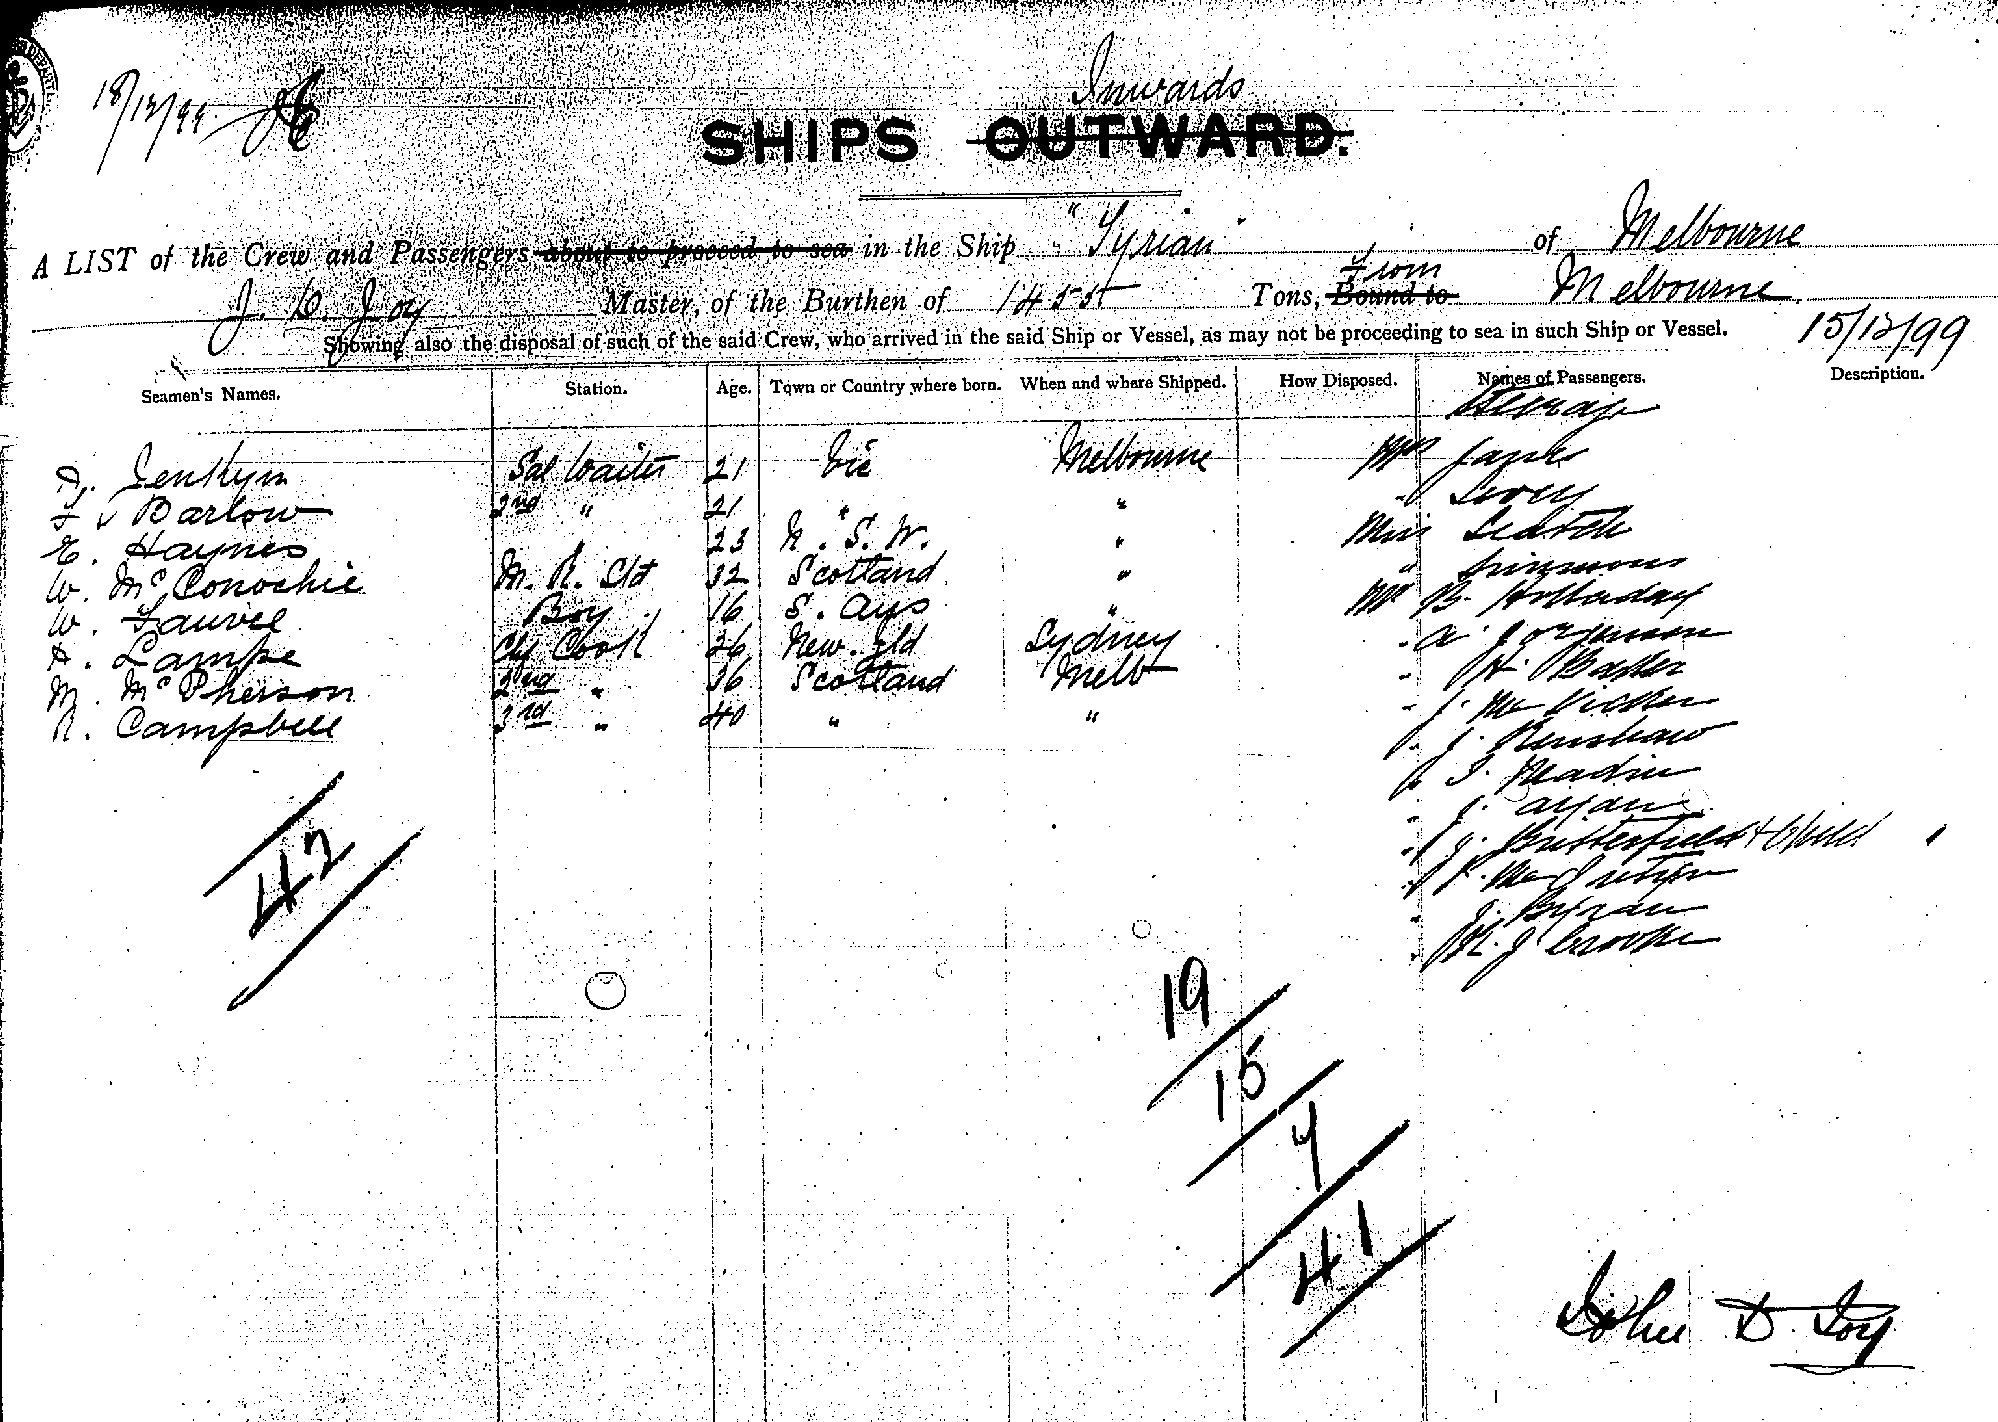 18/12/99
Inwards
SHIPS OUTWARD.
A LIST of the Crew and Passengers about to proceed to sea in the Ship "Syrian" of Melbourne
J. D. Joy Master, of the Burthen of 1455 Tons, Bound to From Melbourne
Showing also the disposal of such of the said Crew, who arrived in the said Ship or Vessel, as may not be proceeding to sea in such Ship or Vessel. 15/12/99
Seamen's Names. Station. Age. Town or Country where born. When and where Shipped. How Disposed. Names of Passengers. Description.
Steerage
Jenkyn Sal Waiter 21 Vic Melbourne Mrs Janks
F. Barlow 2nd " 21 " " "
E. Haynes " 23 N. S. W. " Miss
W. McConochie M. R. Std 32 Scotland " " Simmons
W. Boy 16 S. Aus " Mr B. Holladay
A. Lampe Chf Cook 26 New. Gld Sydney " A. Jorgenson
M. McPherson 2nd " 36 Scotland Melb " H. Baker
R. Campbell 3rd " 40 " " " J. McVicker
" J. Renshaw
" J.
" J.
" J. Butterfield & Child
" P.
" J.
" J. Crooke
42
19
15
7
41
John D. Joy